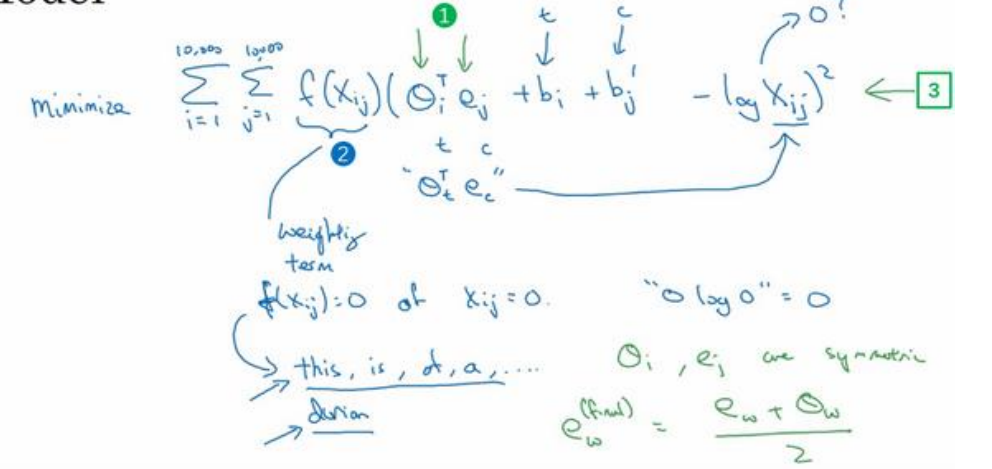 Model
1 t c → 0!
minimize 10,000 Σ i=1 10,000 Σ j=1 f(X_ij)(θ_i^T e_j + b_i + b_j' - log X_ij)^2 ← 3
2 t c
"θ_t^T e_c"
weighting
term
f(X_ij)=0 if X_ij=0. "0 log 0" = 0
this, is, of, a, .... θ_i, e_j are symmetric
durian e_w^(final) = (e_w + θ_w)/2